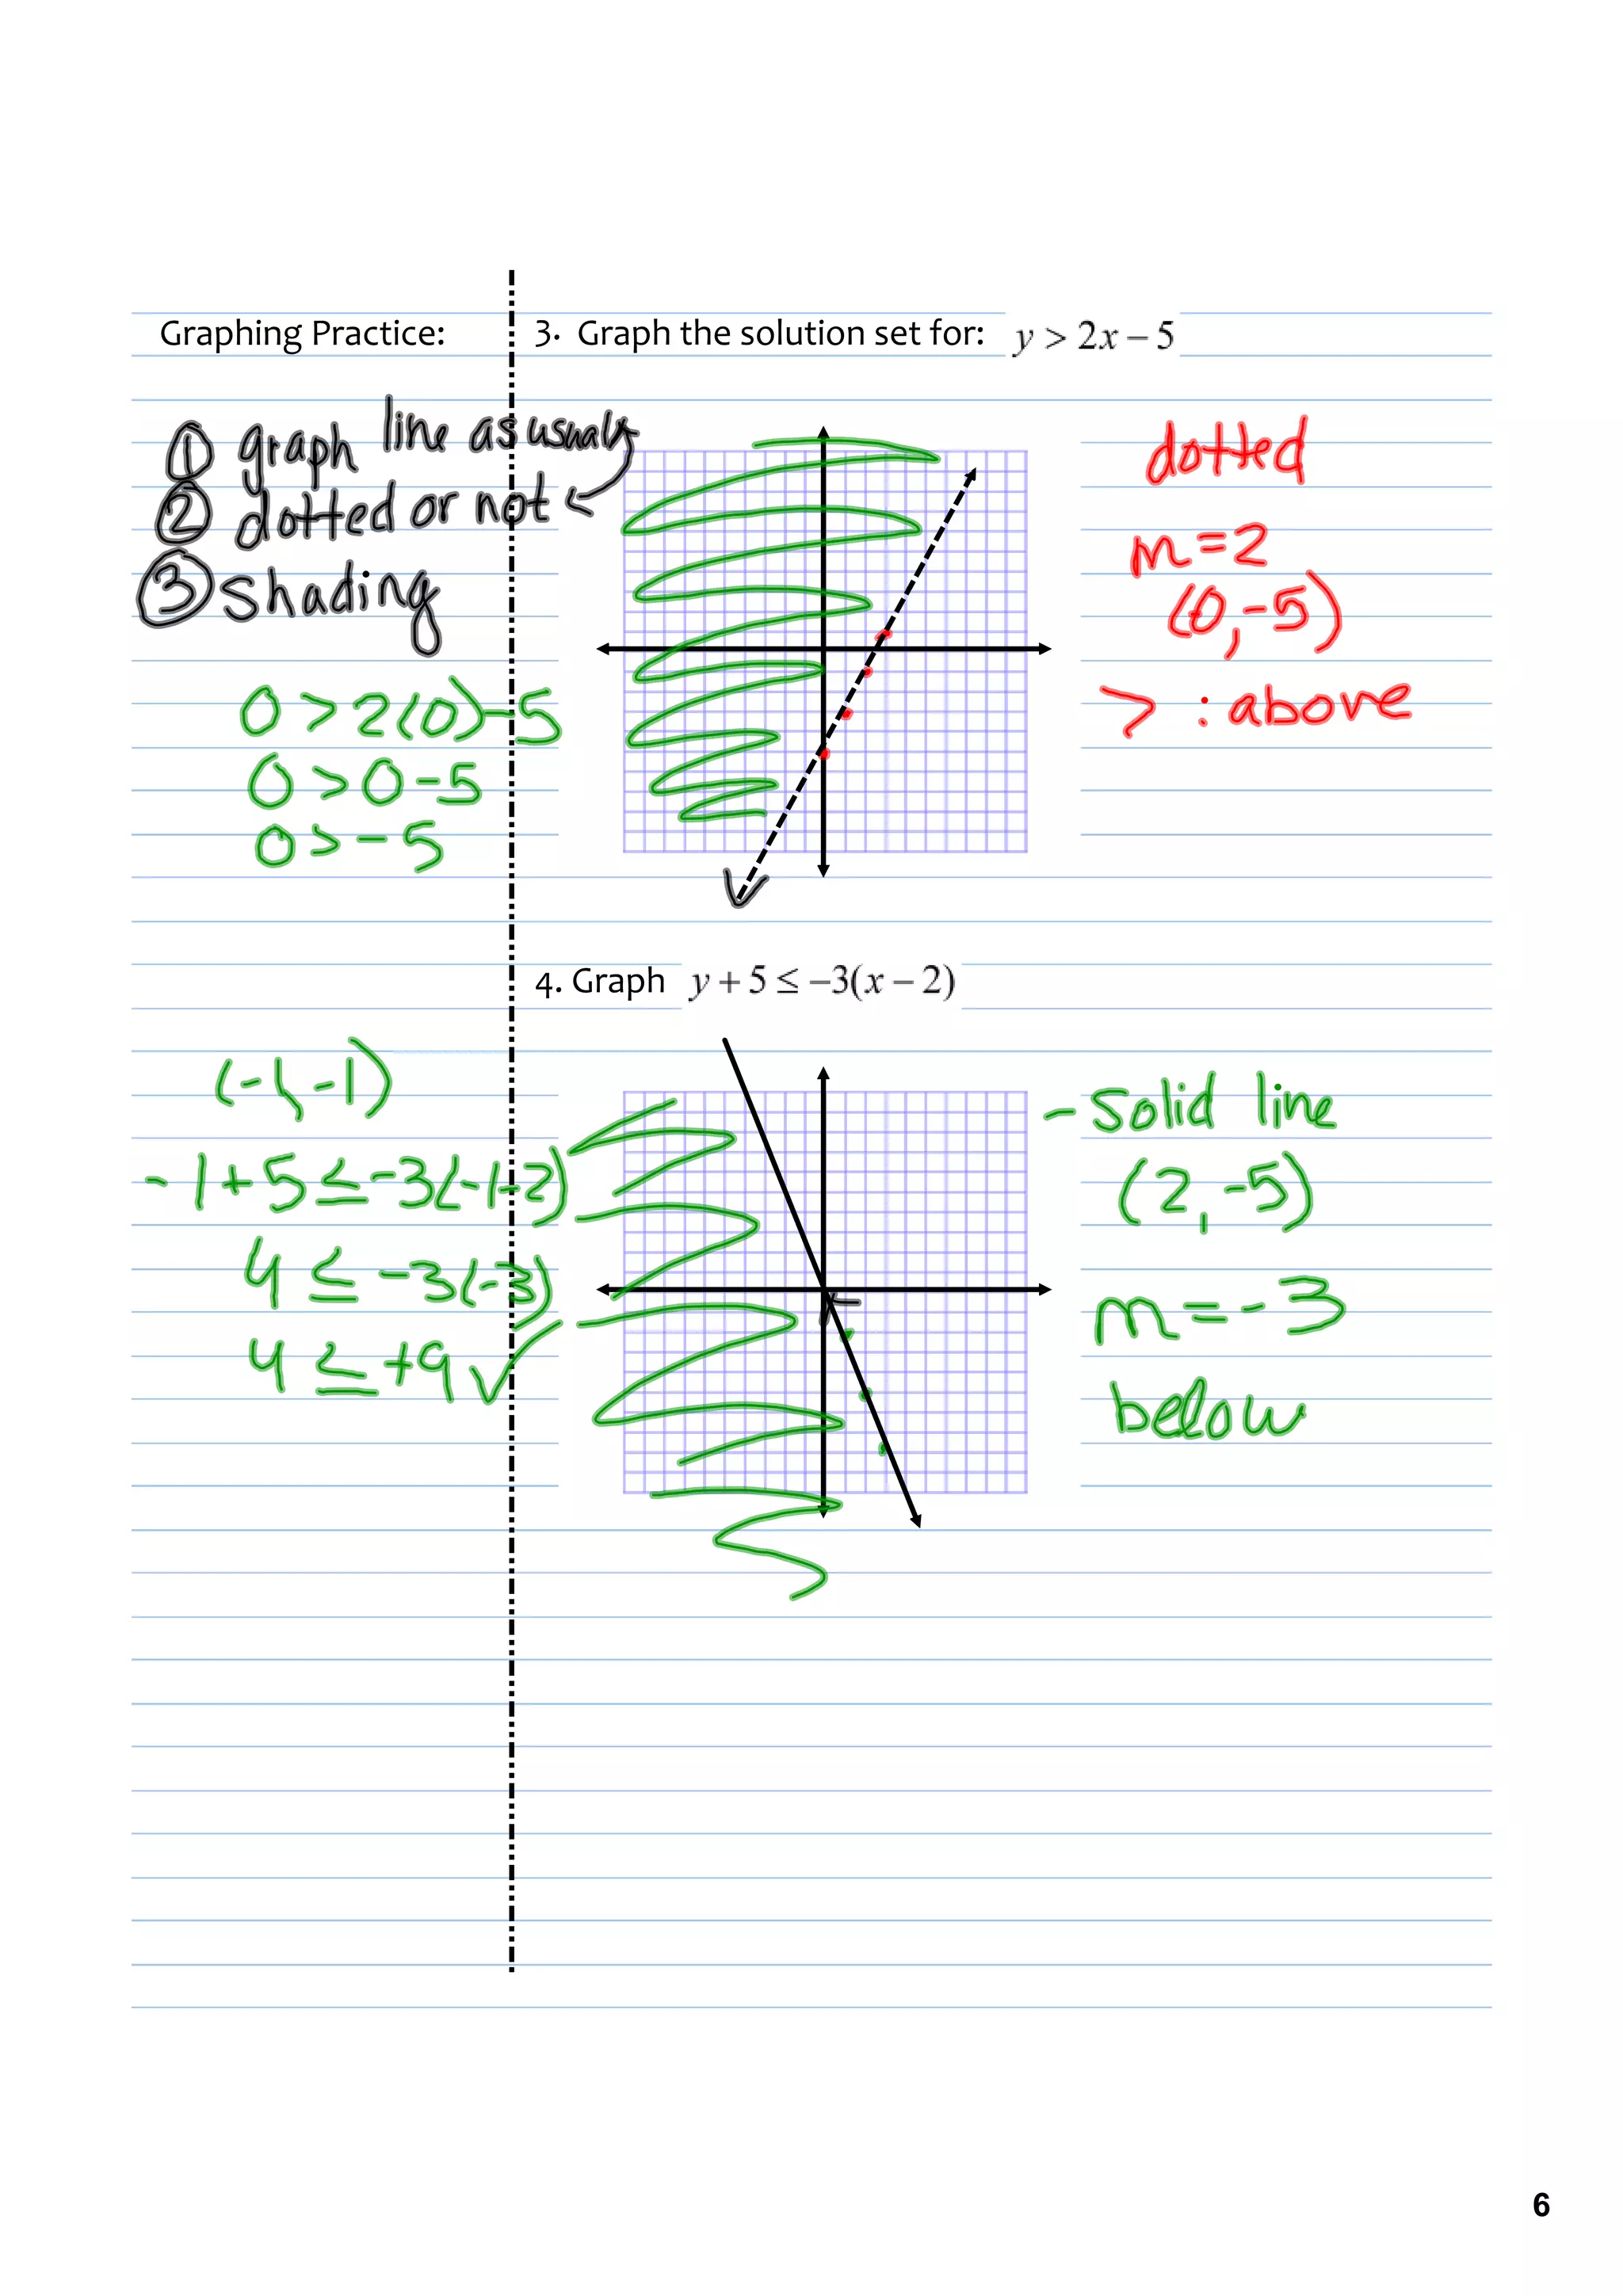 Graphing Practice:
3. Graph the solution set for: y > 2x − 5
① graph line as usual
② dotted or not
③ shading
0 > 2(0) - 5
0 > 0 - 5
0 > - 5
dotted
m = 2
(0, -5)
> : above
4. Graph y + 5 ≤ −3(x − 2)
(-1, -1)
-1 + 5 ≤ -3(-1-2)
4 ≤ -3(-3)
4 ≤ +9 ✓
- Solid line
(2, -5)
m = -3
below
6